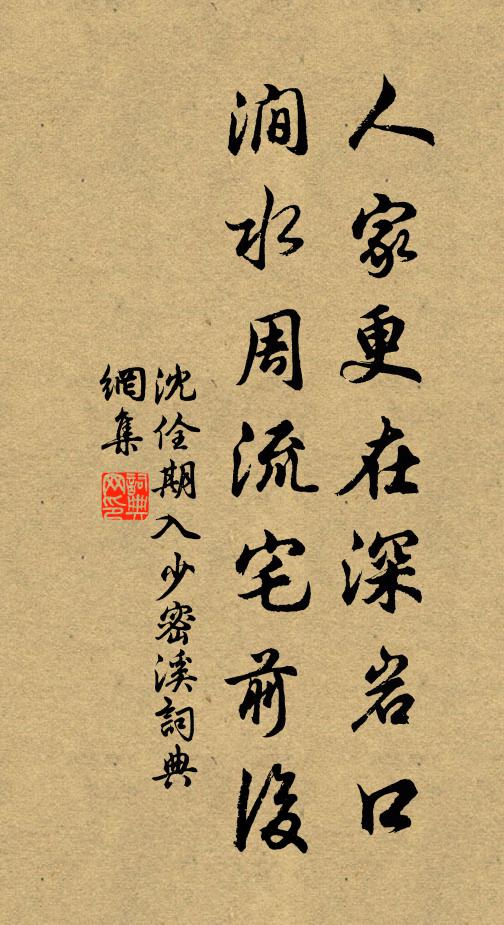 人家更在深岩口
澗水周流宅前後
沈佺期入少密溪詞典
網集
詞典網印